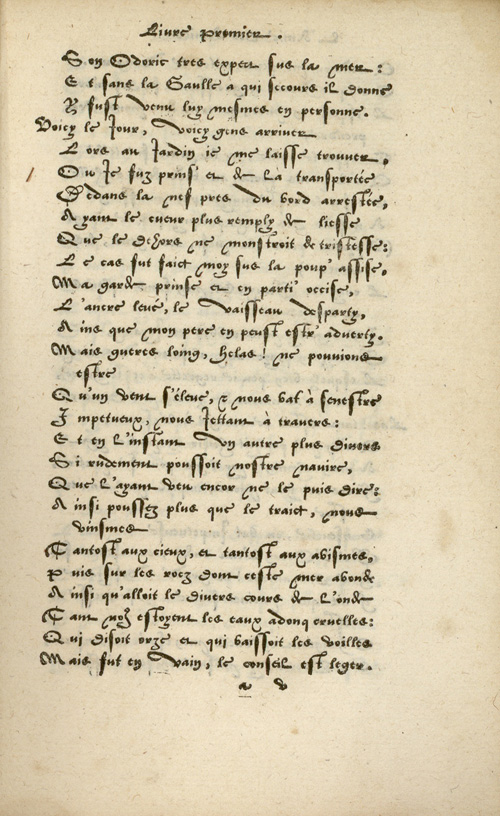 Livre premier.
Son Odoric tres expert sus la mer:
Et sans la Gaulle a qui secours il donne
Y fust venu luy mesmes en personne.
Voicy le Jour, voicy gens arriver
Lors au Jardin ie me laisse trouver,
Ou Je fuz prinse et de La transportée
Dedans la nef pres du bord arrestée,
Ayant le cueur plus remply de liesse
Que le dehors ne monstroit de tristesse:
Le cas fut faict moy sus la poup' assise,
Ma garde prinse et en parti' occise,
L'ancre levé, le vaisseau desparty,
Ains que mon pere en peust estr' adverty.
Mais gueres loing, helas! ne pouvions
estre
Qu'un vent s'éleve, & nous bat à senestre
Impetueux, nous Jettant à travers:
Et en L'instant Un autre plus divers
Si rudement poussoit nostre navire,
Que L'ayant veu encor ne le puis dire:
Ainsi poussez plus que le traict, nous
vinsmes
Tantost aux cieux, et tantost aux abismes,
Puis sur les rocz dont ceste mer abonde
Ainsi qu'alloit le divers cours de L'onde
Tant nous estoyent les eaux adonq cruelles:
Qui disoit orze et qui baissoit les voilles
Mais fut en vain, le conseil est leger.
a v